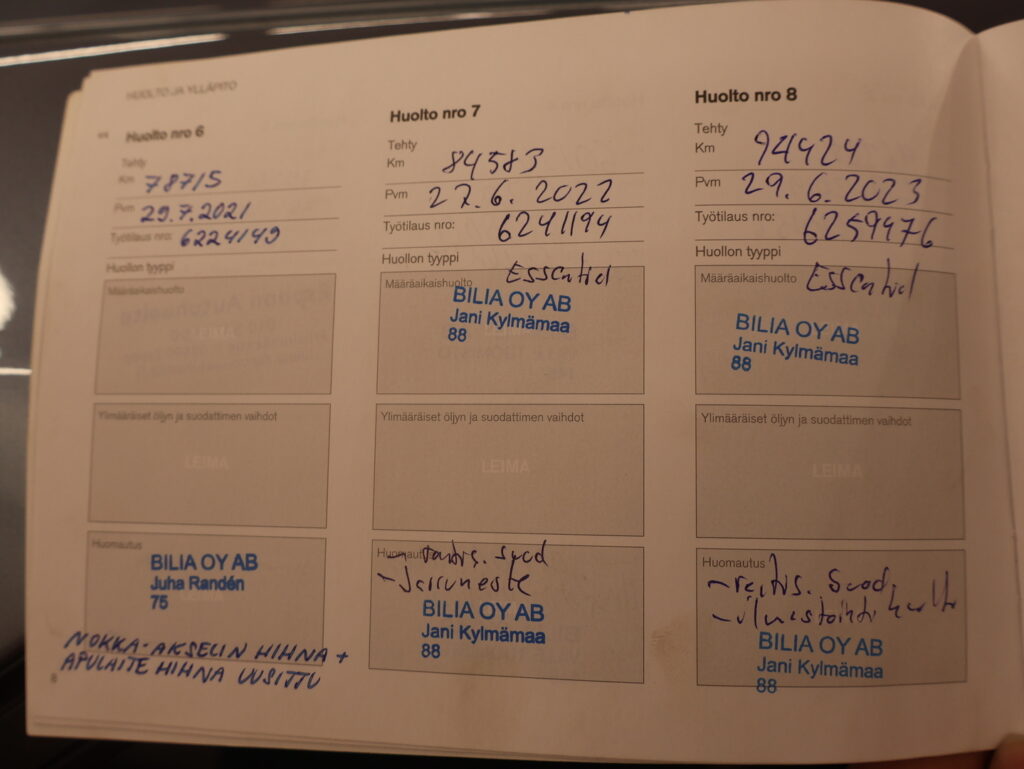 HUOLTO JA YLLÄPITO
Huolto nro 6
Tehty
Km 78715
Pvm 29.7.2021
Työtilaus nro: 6224149
Huollon tyyppi
Määräaikaishuolto
LEIMA
Ylimääräiset öljyn ja suodattimen vaihdot
LEIMA
Huomautus
BILIA OY AB
Juha Randén
75
NOKKA-AKSELIN HIHNA +
APULAITE HIHNA UUSITTU
8
Huolto nro 7
Tehty
Km 84583
Pvm 27.6.2022
Työtilaus nro: 6241194
Huollon tyyppi
Määräaikaishuolto Essential
BILIA OY AB
Jani Kylmämaa
88
Ylimääräiset öljyn ja suodattimen vaihdot
LEIMA
Huomautus
- Jarruneste
BILIA OY AB
Jani Kylmämaa
88
Huolto nro 8
Tehty
Km 94424
Pvm 29.6.2023
Työtilaus nro: 6259476
Huollon tyyppi
Määräaikaishuolto Essential
BILIA OY AB
Jani Kylmämaa
88
Ylimääräiset öljyn ja suodattimen vaihdot
LEIMA
Huomautus
- raitis. Suod.
- ilmastointi huolto
BILIA OY AB
Jani Kylmämaa
88